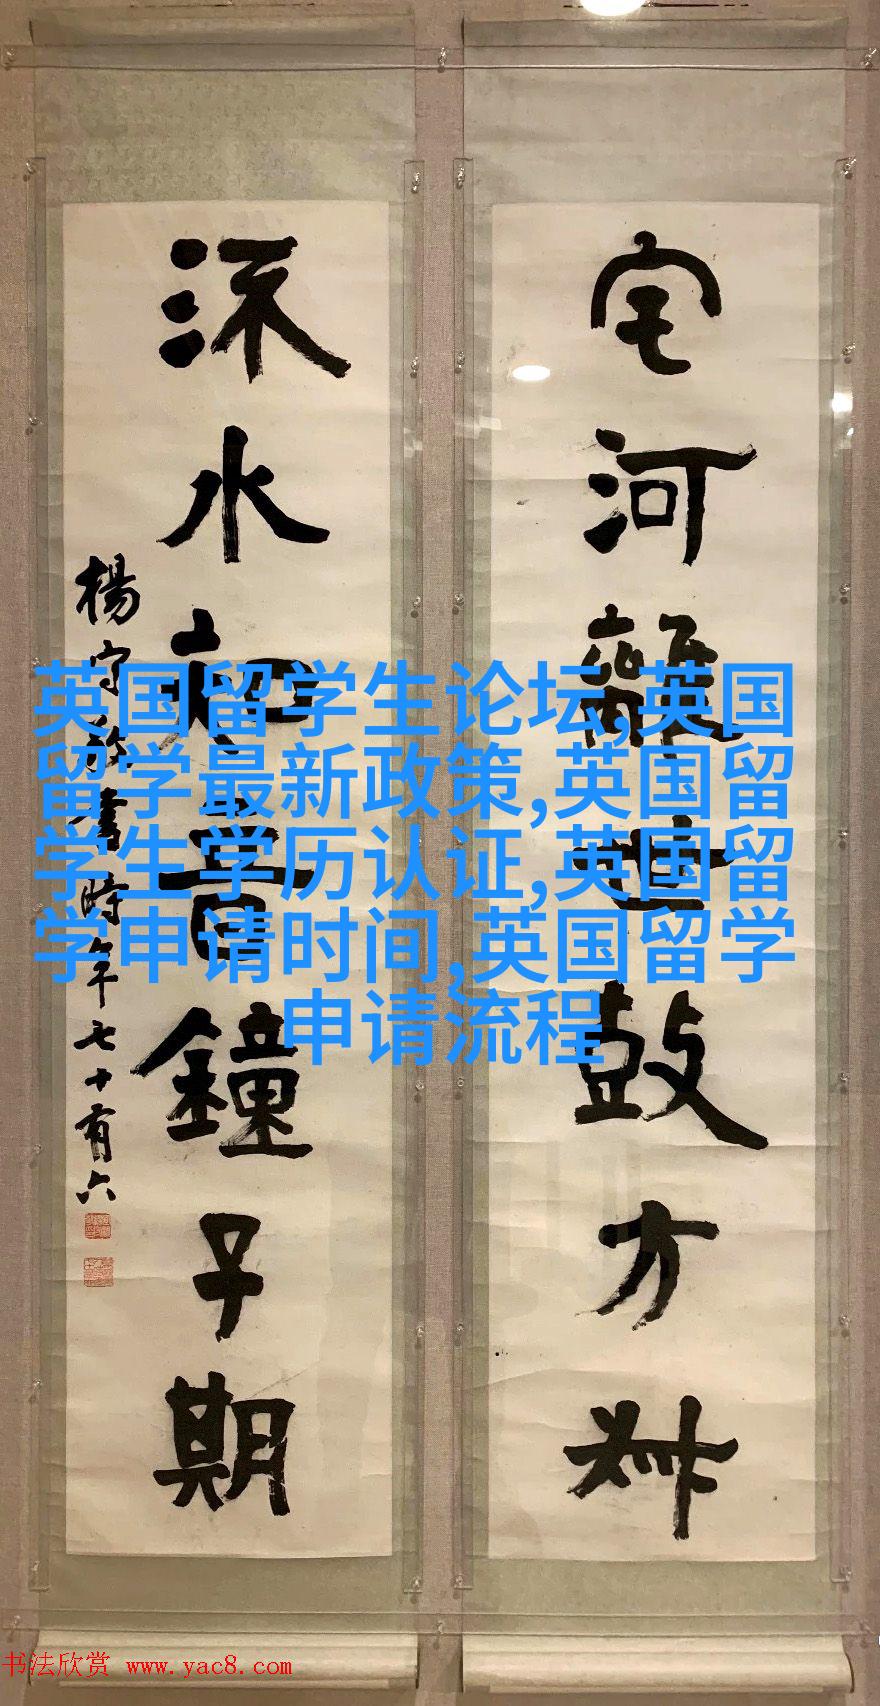 宅河離世鼓方叔
流水知音鐘子期
楊守敬書時年七十有六
英国留学生论坛,英国
留学最新政策,英国留
学生学历认证,英国留
学申请时间,英国留学
申请流程
书法欣赏 www.yac8.com